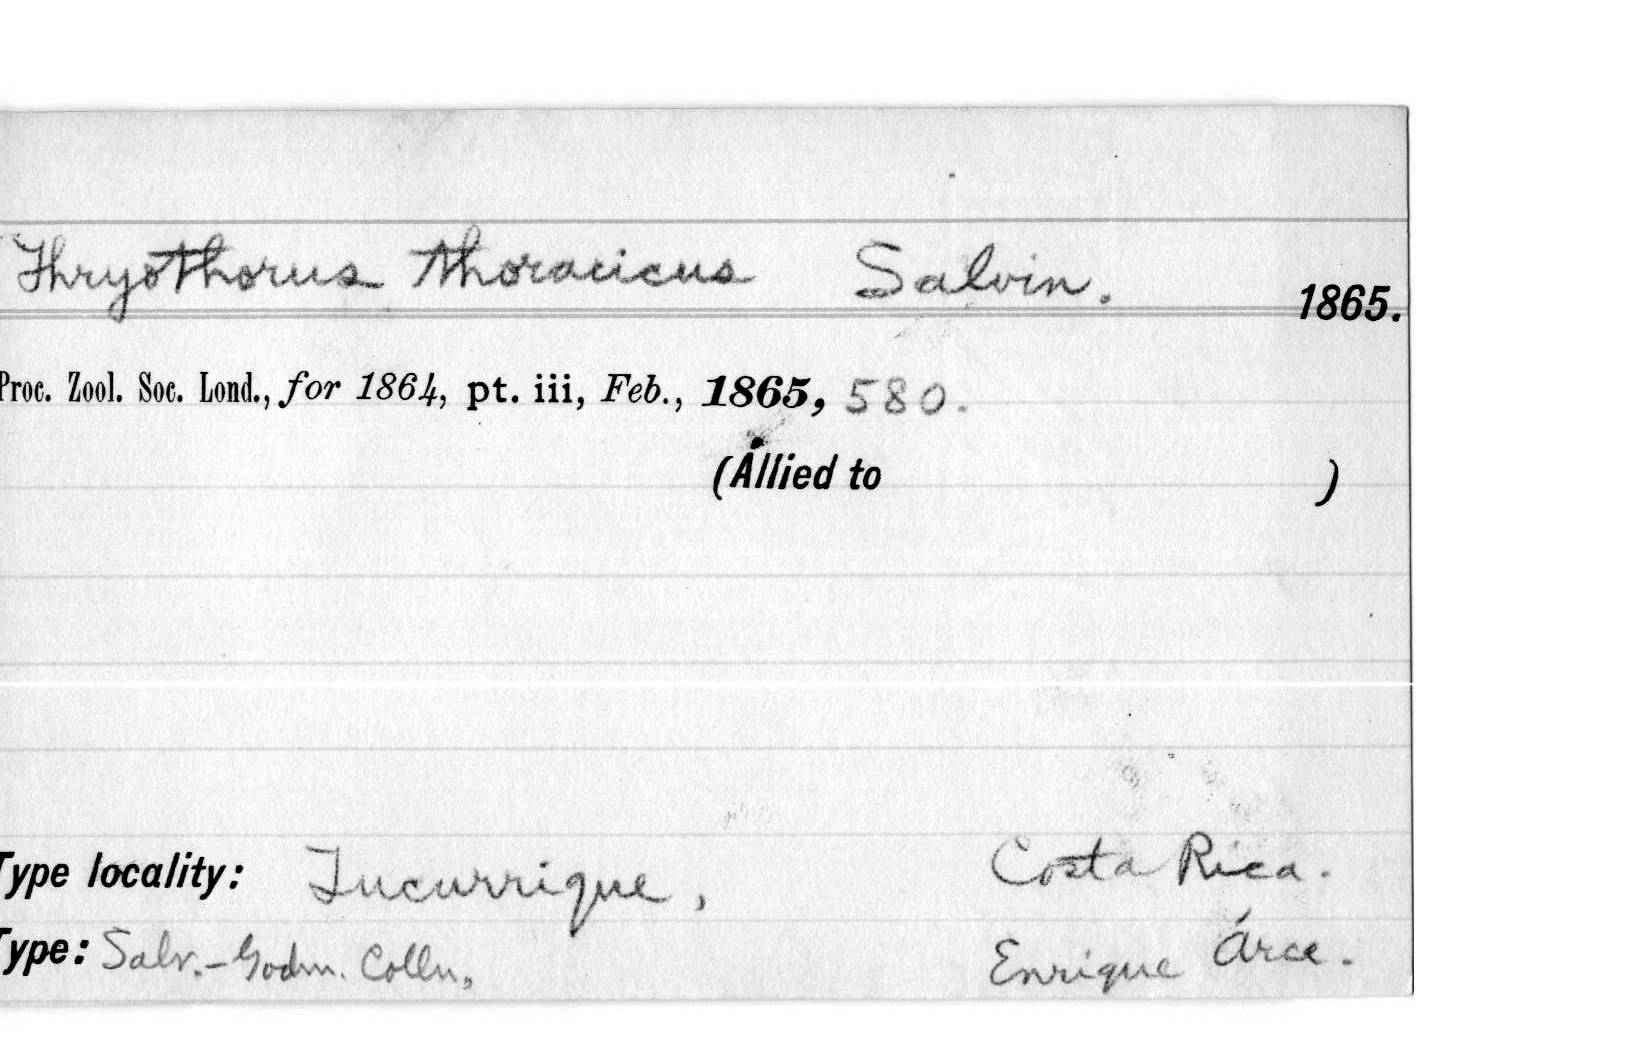 Thryothorus thoracicus Salvin.
1865.
Proc. Zool. Soc. Lond., for 1864, pt. iii, Feb., 1865, 580.
(Allied to )
Type locality: Tucurrique, Costa Rica.
Type: Salv.-Godm. Colln, Enrique Árce.